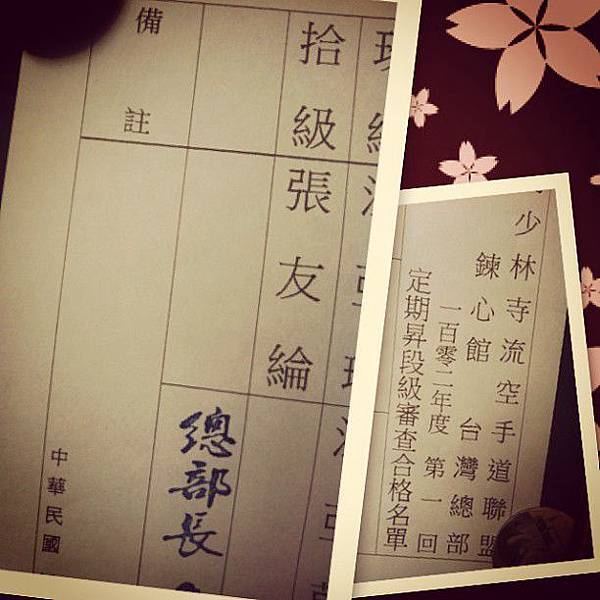 拾級
張友綸
總部長
備註
中華民國
少林寺流空手道聯盟
鍊心館 台灣總部
一百零二年度 第一回
定期昇段級審查合格名單